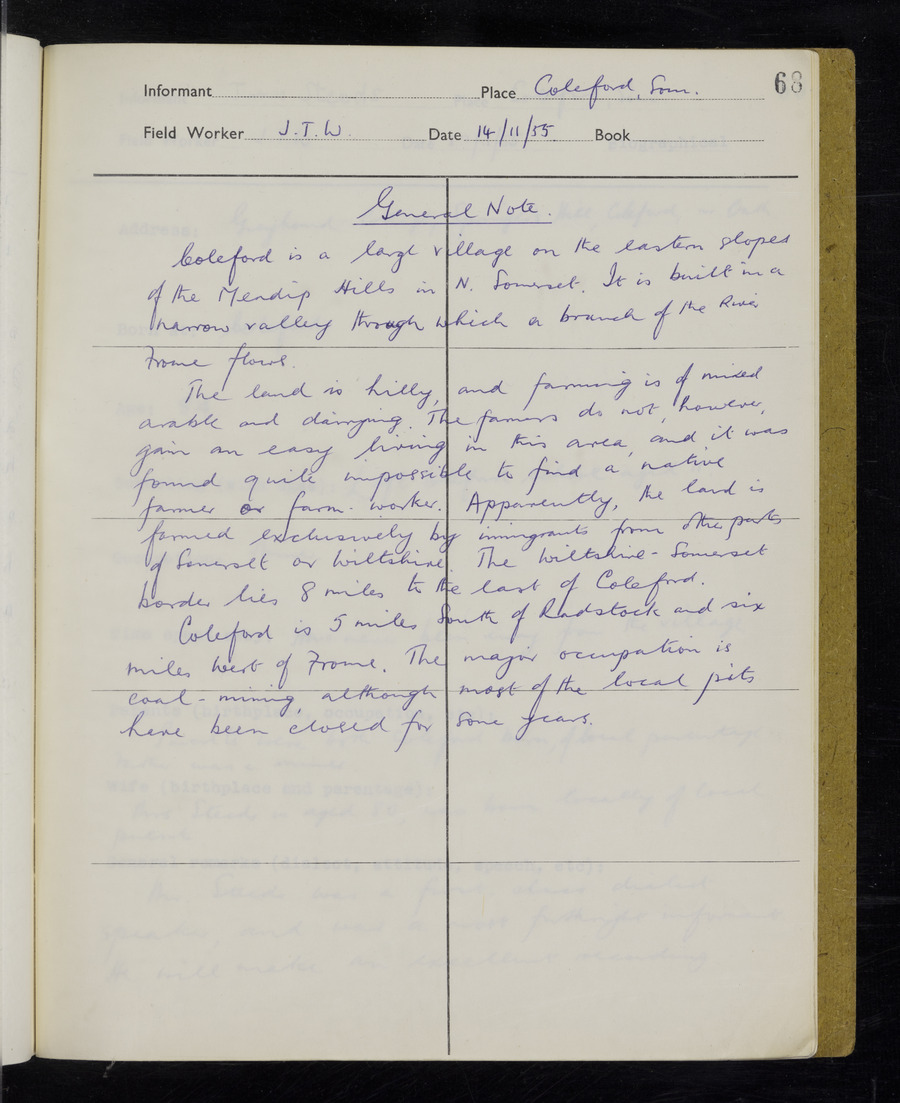 68
Informant Place Coleford, Som.
Field Worker J.T.W. Date 14/11/55 Book
General Note.
Coleford is a large village on the eastern slopes
of the Mendip Hills in N. Somerset. It is built in a
narrow valley through which a branch of the River
Frome flows.
The land is hilly, and farming is of mixed
arable and dairying. The farmers do not, however,
gain an easy living in this area, and it was
found quite impossible to find a native
farmer or farm-worker. Apparently, the land is
farmed exclusively by immigrants from other parts
of Somerset or Wiltshire. The Wiltshire-Somerset
border lies 8 miles to the East of Coleford.
Coleford is 5 miles South of Radstock and six
miles West of Frome. The major occupation is
coal-mining, although most of the local pits
have been closed for some years.